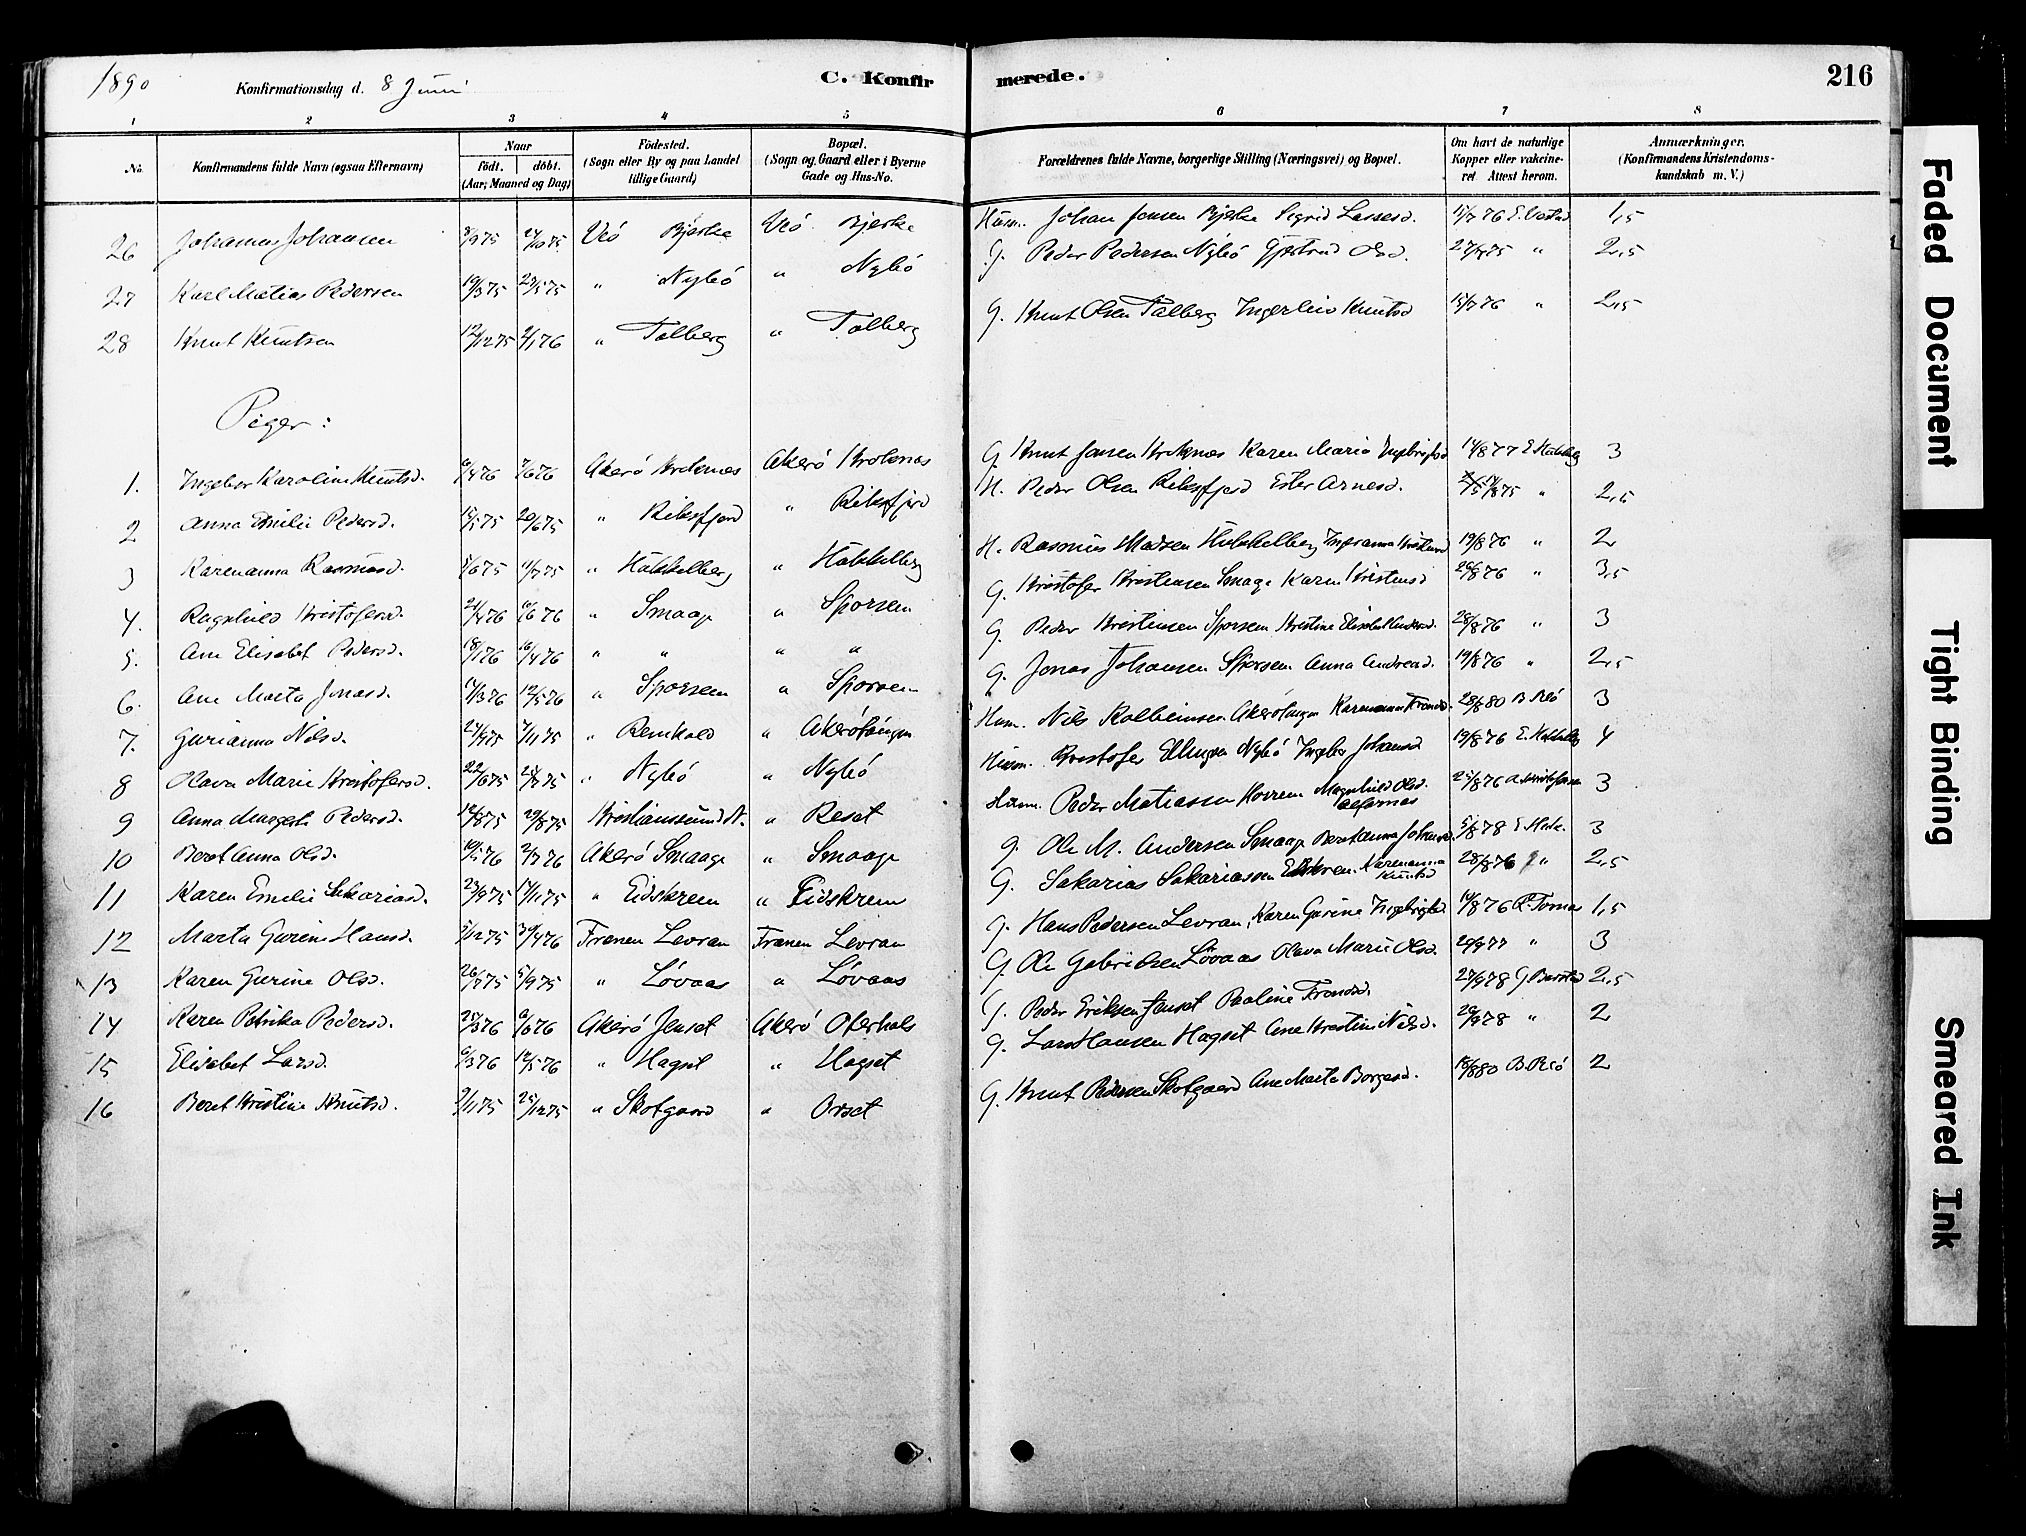 1890 Konfirmationsdag d. 8 Juni C. Konfirmerede. 216
1 2 3 4 5 6 7 8
No. Konfirmandens fulde Navn (ogsaa Efternavn) Naar født. døbt. (Aar, Maaned og Dag) Fødested. (Sogn eller By og paa Landet tillige Gaard) Bopæl. (Sogn og Gaard eller i Byerne Gade og Hus-No. Forældrenes fulde Navne, borgerlige Stilling (Næringsvei) og Bopæl. Om havt de naturlige Kopper eller vakcineret. Attest herom. Anmærkninger. (Konfirmandens Kristendomskundskab m. V.)
26 Johannes Johansen 8/9 75 24/10 75 Veö Bjerke Veö Bjerke Husm. Johan Jensen Bjerke Sigrid Lassesd. 1,5
27 Karl Matias Pedersen 19/3 75 27/5 75 " Nybö " Nybö G. Peder Pedersen Nybö Gjertrud Olsd. " 2,5
28 Knut Knutsen 12/12 75 2/1 76 " Tolberg " Tolberg G. Knut Olsen Talberg Ingerleiv Knutsd 15/7 76 " 2,5
Piger:
1. Ingebor Karoline Knutsd. 6/4 76 7/6 76 Akerö Kroknes Akerö Kroknes G. Knut Jensen Kroknes Karen Maria Ingebrigtsd 14/8 77 3
2 Anna Emilie Pedersd. 20/6 75 " Riksfjord " Riksfjord H. Peder Olsen Riksfjord Ester Arnesd. " 2,5
3 Karenanna Rasmusd. 5/6 75 11/7 75 " Hukkelberg " Hukkelberg H. Rasmus Madsen Hukkelberg 19/8 76 " 2
4. Ragnhild Kristofersd. 21/4 76 6/6 76 " Smaage " Sporsem G. Kristofer Kristensen Smage Karen Kristensd 26/8 76 " 3,5
5. Ane Elisabet Pedersd. 18/1 76 16/4 76 " " " " G. Peder Kristensen Sporsem Kristine Elisabet Andersd. 28/8 76 " 3
6. Ane Marta Jonasd. 17/3 76 12/5 76 " Sporsem " Sporsem G. Jonas Johansen Sporsem Anna Andread. 19/8 76 " 2,5
7. Gurianna Nilsd. 24/9 75 7/11 75 " " Akerötangen Husm. Nils Kolbeinsen Akerötangen Karenanna Trondsd. 28/8 80 B. Reö 3
8 Olava Marie Kristofersd. 22/6 75 " Nybö " Nybö Husm. Kristofer Ellingsen Nybö Ingebor Johansd 19/8 76 4
9 Anna Margrete Pedersd. 12/8 75 29/8 75 Kristianssund N. " Reset Husm. Peder Matiassen Korrem Magnhild Olsd. 25/8 76 3
10 Beret Anna Olsd. 2/7 76 Akerö Smaage " Smaage G. Ole M. Andersen Smaage Beret Anna Johansd. 5/8 78 3
11 Karen Emelie Sakariasd. 23/9 75 14/11 75 " Eidskrem " Eidskrem G. Sakarias Sakariassen Eidskrem. Karenanna Knutsd 28/8 76 " 2,5
12 Marta Gurine Hansd. 5/12 75 30/4 76 Frænen Levran Frænen Levran G. Hans Pedersen Levran, Karen Gurine Ingebrigtsd 1,5
13 Karen Gurine Olsd. 26/7 75 5/9 75 " Løvaas " Løvaas G. Ole Gabrielsen Løvaas Olava Marie Olsd. " 3
14 Karen Petrika Pedersd. 25/3 76 6/6 76 Akerö Jenset Akerö Oterhals G. Peder Eriksen Jenset Pauline Trondsd. 27/9 78 2,5
15 Elisabet Larsd. 6/3 76 14/5 76 " Hagset " Hagset G. Lars Hansen Hagset Ane Kristine Nilsd. " 2
16 Beret Kristine Knutsd. 9/11 75 25/12 75 " Skotgaard " Orset G. Knut Pedersen Skotgaard Ane Marta Borgesd. 18/8 80 B. Reö 2
Faded Document
Tight Binding
Smeared Ink